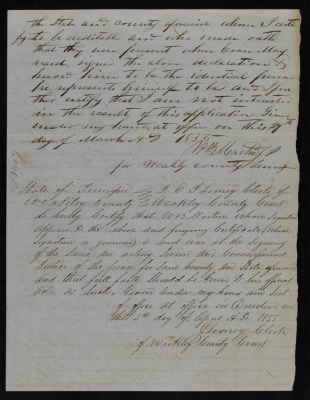 the State and county aforesaid whom I certify
to be creditable and who made oath
that they were present when Evan May
signed the above declaration &
know him to be the identical person
he represents himself to be and I further
certify that I am not interested
in the result of this application Given
under my hand at office on this 7th
day of March AD 1855
W B Martin J P
for Weakly county Tenn
State of Tennessee
Weakley County County Court
do hereby Certify that W B Martin whose Signature
appears to the above and forgoing Certificate which
Signature is genuine is and was at the Signing
of the Same an acting Sworn and Commissioned
Justice of the peace for Said County and State aforesaid
and that full faith Should be Given to his official
acts as Such Given under my hand and Seal
of office at office in Dresden on
this 5th day of April A.D. 1855
Clerk
of Weakley County Court